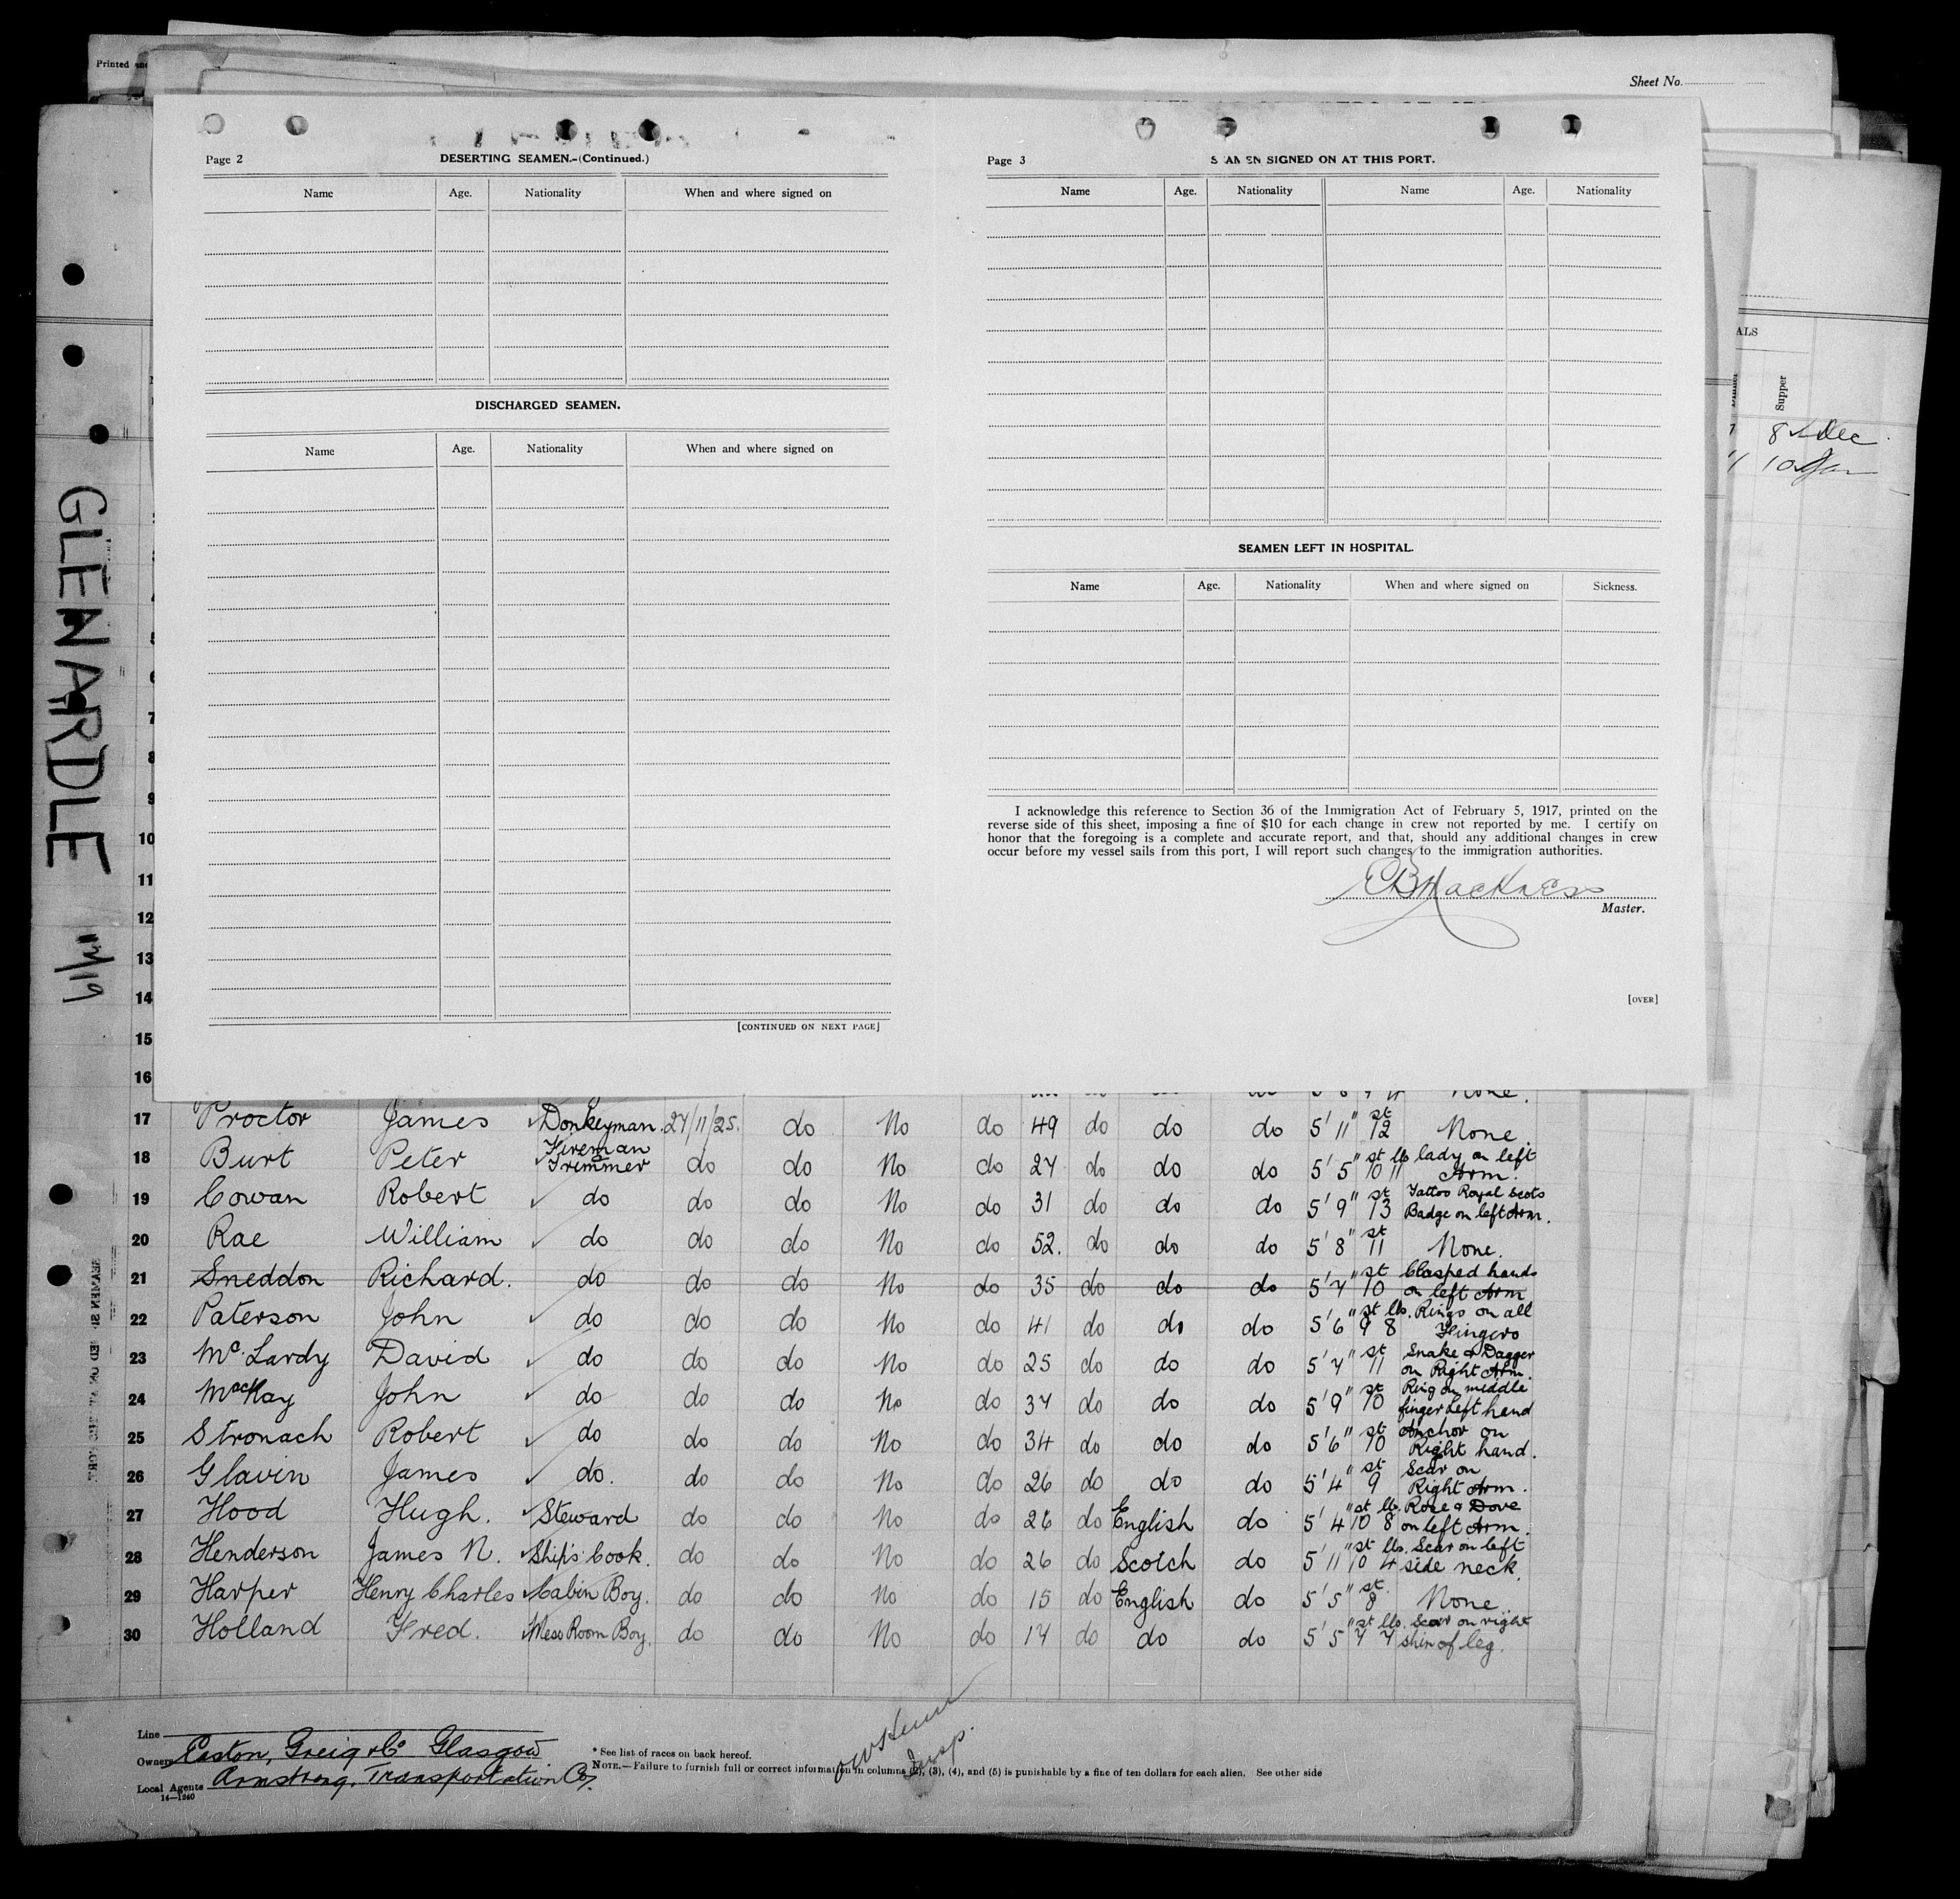 Printed
Sheet No.
Page 2 DESERTING SEAMEN.-(Continued.)
Name Age. Nationality When and where signed on
DISCHARGED SEAMEN.
Name Age. Nationality When and where signed on
[CONTINUED ON NEXT PAGE]
Page 3 SIGNED ON AT THIS PORT.
Name Age. Nationality Name Age. Nationality
SEAMEN LEFT IN HOSPITAL.
Name Age. Nationality When and where signed on Sickness.
I acknowledge this reference to Section 36 of the Immigration Act of February 5, 1917, printed on the
reverse side of this sheet, imposing a fine of $10 for each change in crew not reported by me. I certify on
honor that the foregoing is a complete and accurate report, and that, should any additional changes in crew
occur before my vessel sails from this port, I will report such changes to the immigration authorities.
Master.
[OVER]
ALS
Supper
8 Dec
10 Jan
GLENARDLE
7
8
9
10
11
12
13
14
15
16 None.
17 Proctor James Donkeyman. 27/11/25. do No do 49 do do do 5' 11" 12 st None.
18 Burt Peter Fireman Trimmer do do No do 27 do do do 5' 5" 10 st 11 lb lady on left Arm.
19 Cowan Robert do do do No do 31 do do do 5' 9" 13 st Tattoo Royal Scots Badge on left Arm.
20 Rae William do do do No do 52. do do do 5' 8" 11 st None.
21 Sneddon Richard. do do do No do 35 do do do 5' 7" 10 st Clasped hands on left Arm
22 Paterson John do do do No do 41 do do do 5' 6" 9 st 8 lbs. Rings on all Fingers
23 Mc.Lardy David do do do No do 25 do do do 5' 7" 11 st Snake & Dagger on Right Arm.
24 MacKay John do do do No do 37 do do do 5' 9" 10 st Ring on middle finger Left hand
25 Stronach Robert do do do No do 34 do do do 5' 6" 10 st Anchor on Right hand.
26 Glavin James do. do do No do 26 do do do 5' 4" 9 st Scar on Right Arm.
27 Hood Hugh. Steward do do No do 26 do English do 5' 4" 10 st 8 lb Rose & Dove on left Arm.
28 Henderson James N. Ship's Cook. do do No do 26 do Scotch do 5' 11" 10 st 4 lbs. Scar on left side neck.
29 Harper Henry Charles Cabin Boy. do do No do 15 do English do 5' 5" 8 st. None
30 Holland Fred. Mess Room Boy. do do No do 17 do do do 5' 5" 7 st 7 lbs. Scar on right shin of leg.
Line
Owners Easton, Greig & Co Glasgow
Local Agents Armstrong, Transportation Co.
14—1240
* See list of races on back hereof.
NOTE.—Failure to furnish full or correct information in columns (2), (3), (4), and (5) is punishable by a fine of ten dollars for each alien. See other side
Insp.